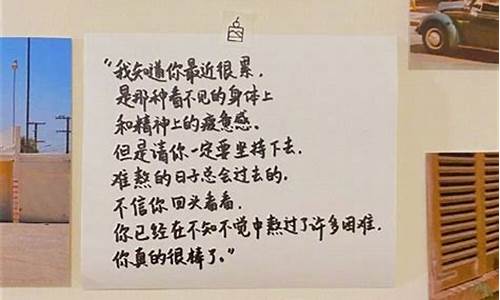 “我知道你最近很累，
是那种看不见的身体上
和精神上的疲惫感、
但是请你一定要坚持下去.
难熬的日子总会过去的.
不信你回头看看.
你已经在不知不觉中熬过了许多困难.
你真的很棒了。”